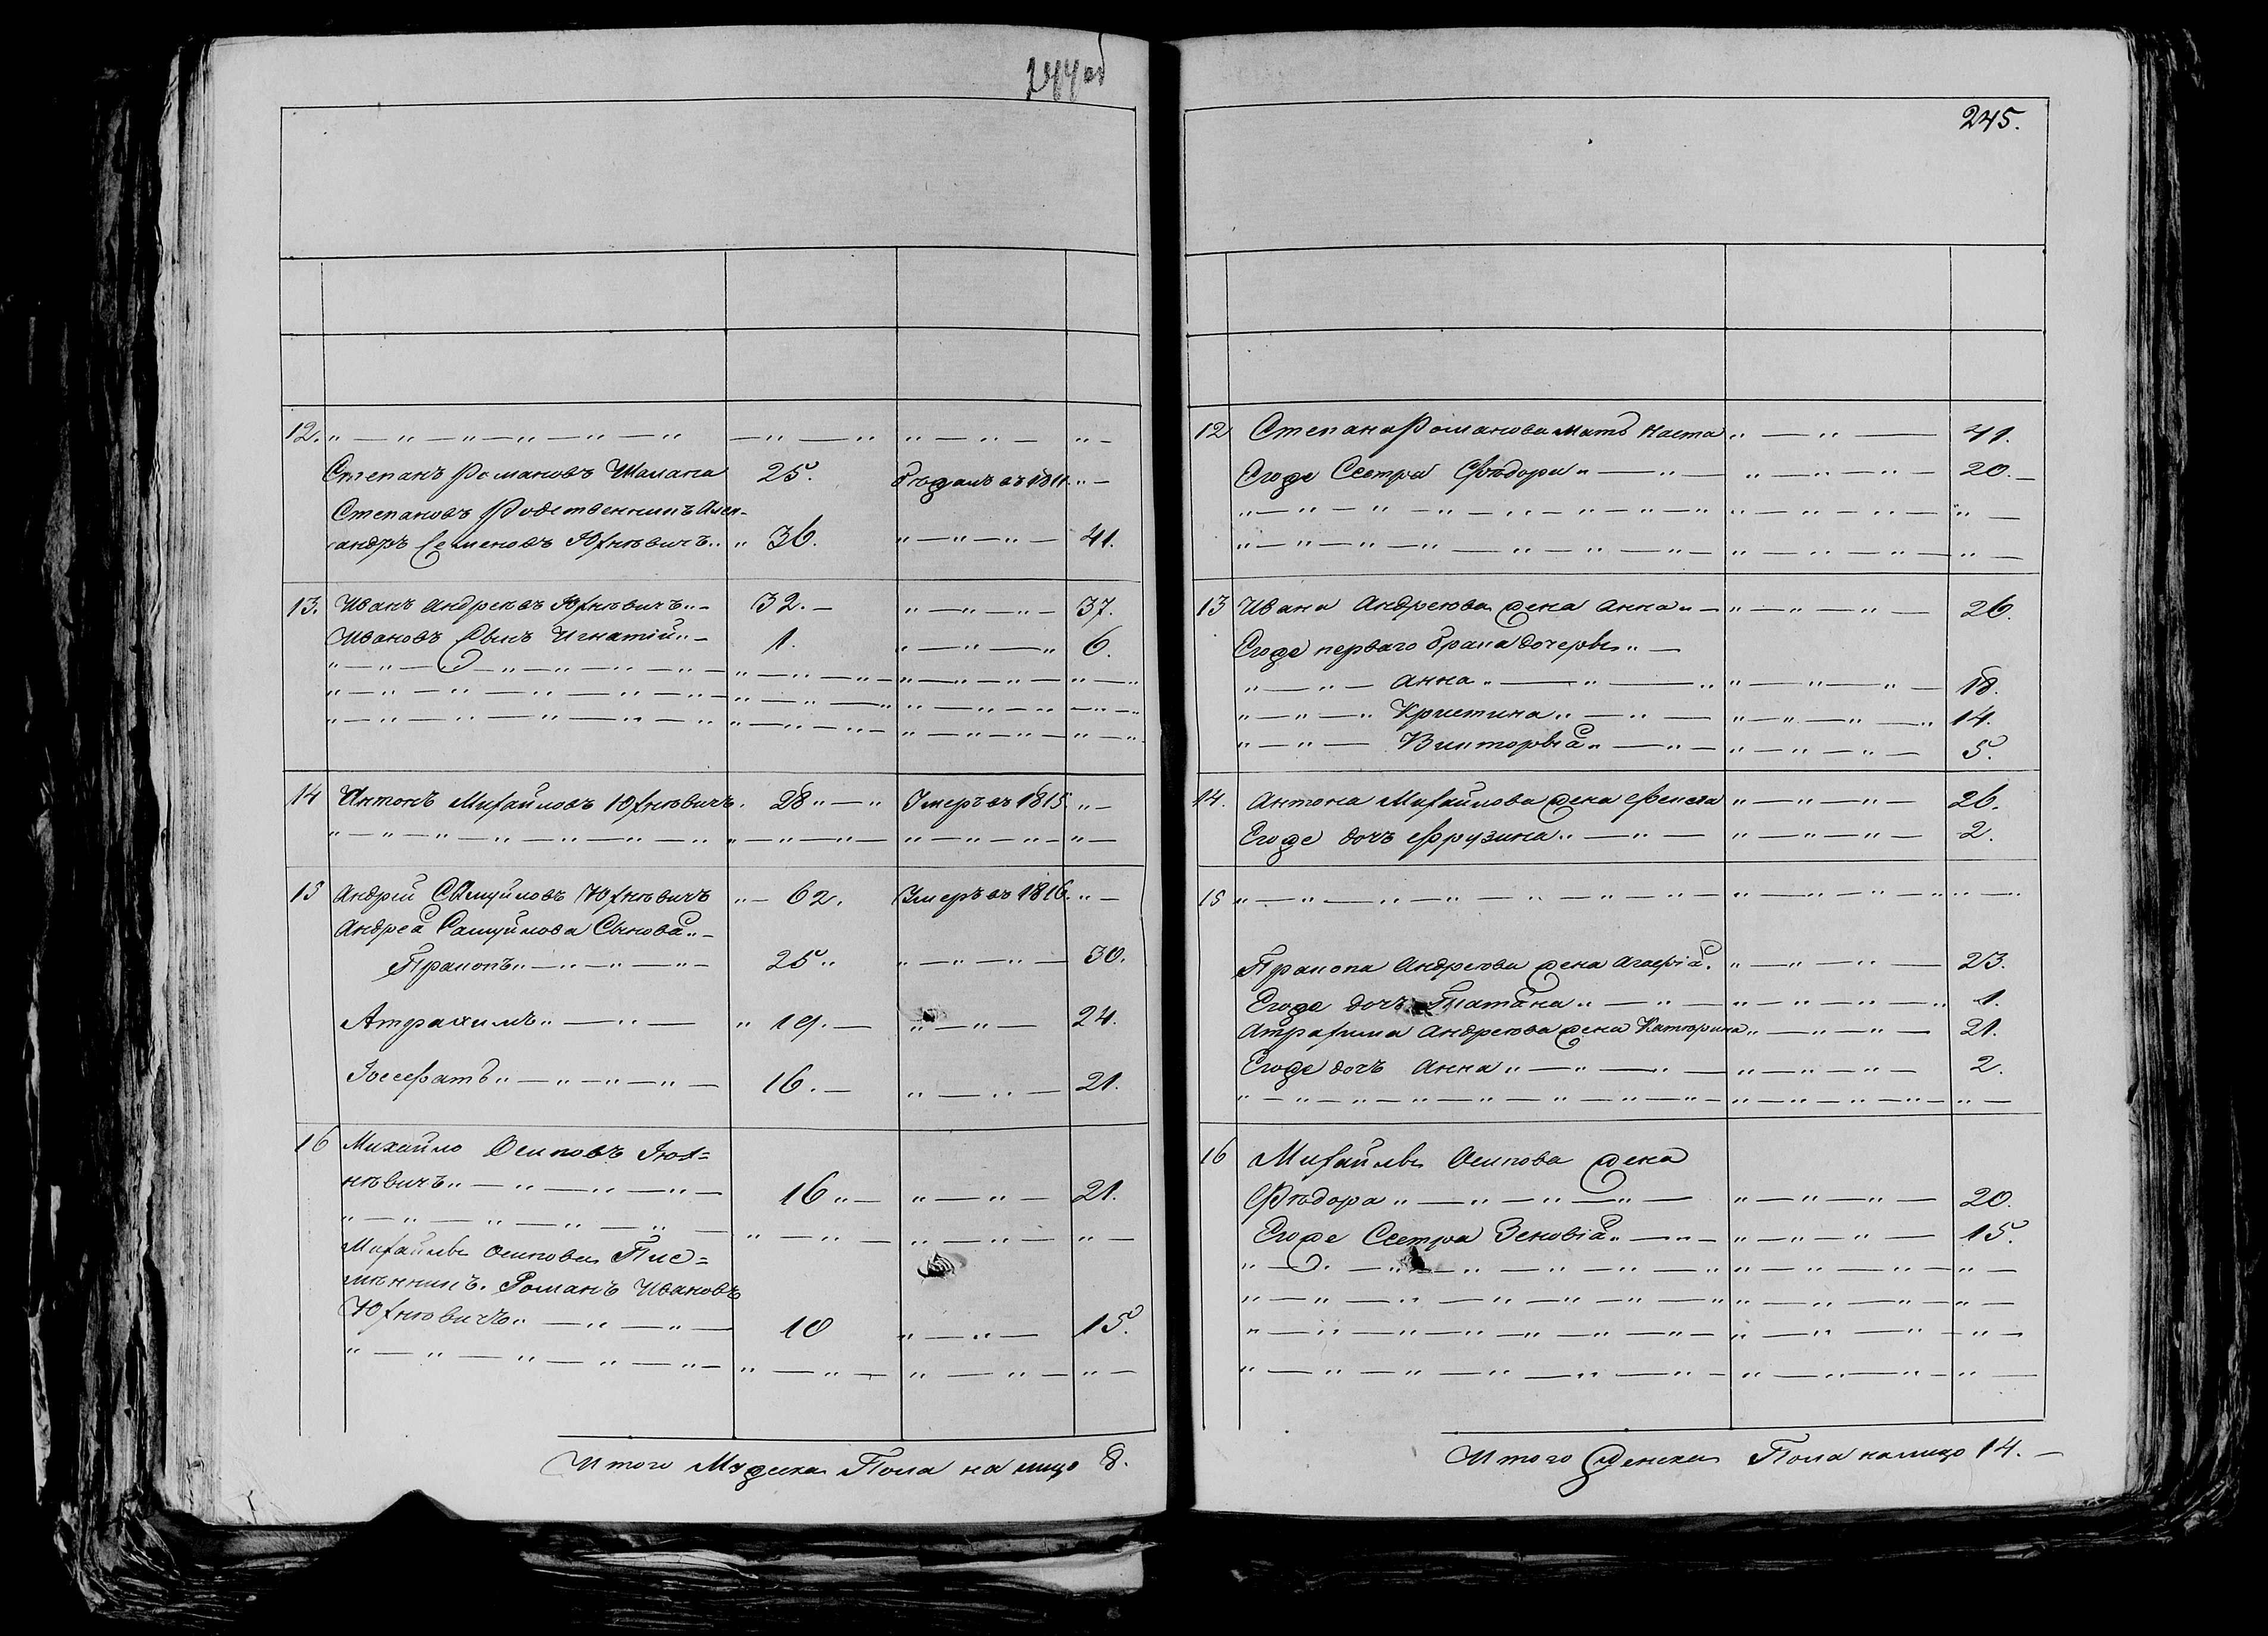 244об
12. " — " — " — " — " — " — " — " — " " — " — " —
Степанъ Романовъ Шалапа 25. въ 1811. " —
Степановъ Родственникъ Алек-
сандръ Семеновъ Юхнѣвичъ " " 36. " — " — " — 41.
13. Иванъ Андреевъ Юхнѣвичъ " — 32. — " — " — " — 37.
Ивановъ Сынъ Игнатій " — 1. " — " — " 6.
14 Антонъ Михайловъ Юхнѣвичъ. 28 " — " Умеръ въ 1815 " —
15 Андрей Самуйловъ Юхнѣвичъ " — 62. Умеръ въ 1816. " —
Андрея Самуйлова Сыновя " —
Пракопъ " — " — " — " — 25 " " — " — " — 30.
Атрахимъ " — " — " 19. — " — " — 24.
Іосефатъ " — " — " — " — 16. — " — " — 21.
16 Михайло Осиповъ Юх=
нѣвичъ " — " — " — " — 16 " — " — " — 21.
Михайлы Осипова Плѐ=
мѣнникъ. Романъ Ивановъ
Юхнѣвичъ " — " — " — 10 " — " — 15.
Итого Мужеска Пола на лицо 8.
245.
12 Степана Романова мать Наста " — " — 41.
Егоже Сестра Ѳѣдора " — " — " — " — " — 20. —
13 Ивана Андреева жена Анна " — " — " — " — 26.
Егоже перваго брака дочеры " —
" — " — Анна " — " — " " — " — " — 18.
" — " — " Кристина " — " — " — " — " — " 14.
" — " — Викторыя " — " — " — " — " — 5.
14. Антона Михайлова жена Фекла " — " — " — 26.
Егоже дочъ Фрузина " — " — " — " — " — 2.
15 " — " — " — " — " — " — " — " — " — " — " — "
Пракопа Андреева жена Агафія. " — " — " — 23.
Егоже дочъ Татяна " — " — " — " — " — " 1.
Атрахима Андреева жена Катѣрина " — " — " — 21.
Егоже дочъ Анна " — " — " — " — " — " — 2.
16 Михайлы Осипова жена
Ѳѣдора " — " — " — " — " — " — " — 20.
Егоже Сестра Зеновія " — " — " — " — " — 15.
Итого Женска Пола налицо 14. —